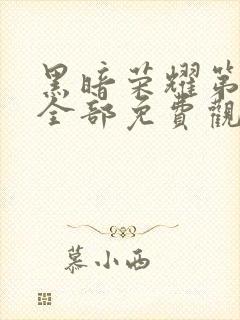 黑暗荣耀第
全部免費觀
慕小西